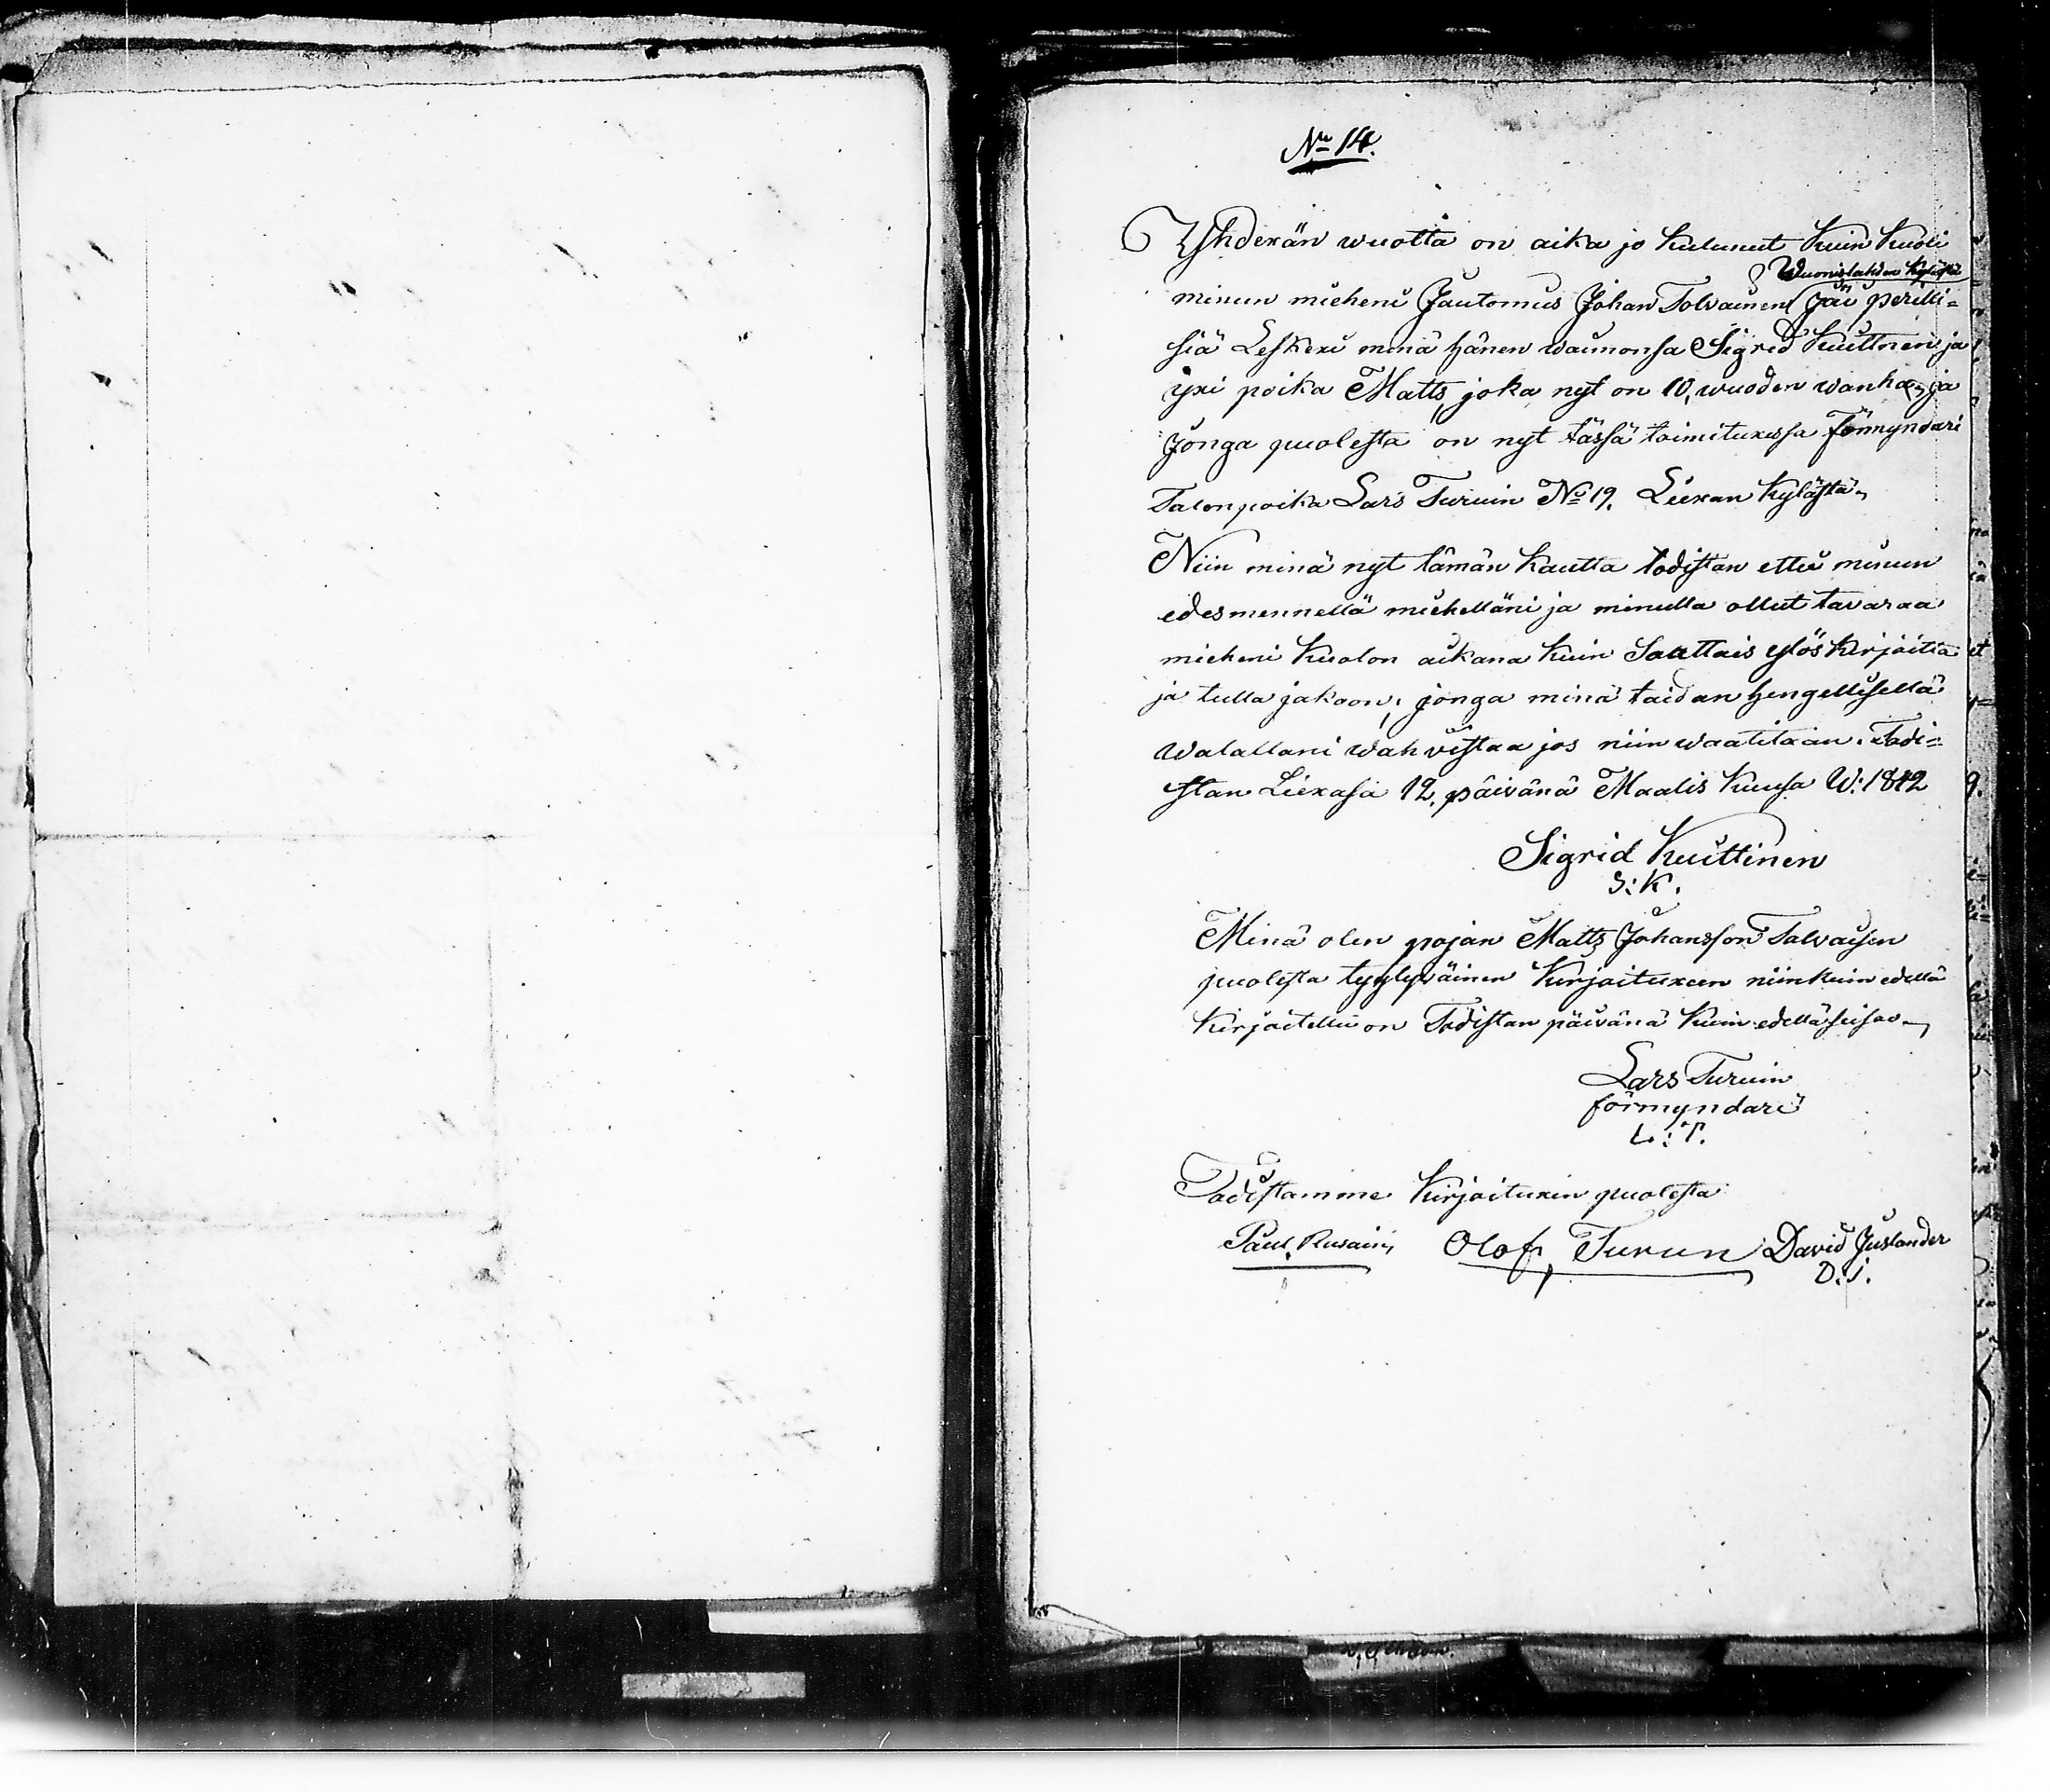 No 14.
Yhdexän wuotta on aika jo kulunut kuin kuoli
Wuonislahden kylästä
minun mieheni Jautomus Johan Tolvainen Jäi perilli=
siä Leskexi minä hänen waimonsa Sigrid Kuittinen ja
yxi poika Matts, joka nyt on 10, wuoden wanha, ja
Jonga puolesta on nyt tässä toimituxessa Förmyndari
Talonpoika Lars Turuin No 19. Liexan kylästä,
Niin minä nyt tämän kautta todistan ettei minun
edesmennellä miehelläni ja minulla ollut tavaraa
mieheni kuolon aikana kuin Sauttais ylöskirjoitta
ja tulla jakoon, jonga minä taidan hengellisellä
walallani wahvistaa jos niin waatitaan. Todi=
stan Liexasa 12. päivänä Maalis kuusa W: 1842
Sigrid Kuittinen
S: K.
Minä olen pojan Matts Johansson Talvaisen
puolesta tyytyväinen kirjoituxeen niinkuin edellä
kirjoitettu on Todistan päivänä kuin edellä seisoo,
Lars Turuin
förmyndari
L: T.
Todistamme kirjoituxen puolesta
Paul Rusain, Olof Turun David Juslander
D. J.